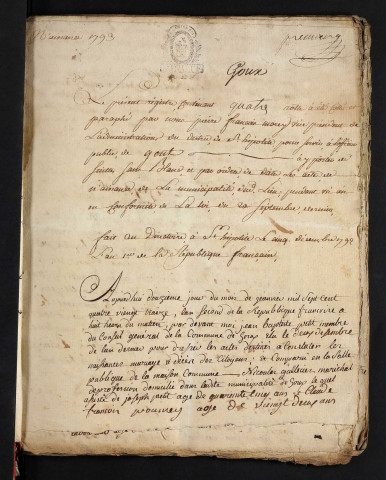 1793
Goux
Le présent registre contenant quatre
paraphé par nous pierre francois vice président de
L'administration du district de St hippolite pour servir à l'officier
public de gout
sans Blanc et par ordre de date Les actes de
naissance de La municipalité dud. Lieu, pendant
conformité de La loi du 20 Septembre dernier
fait au Directoire à St hippolite Le cinq décembre 1792
L'an 1er de La République francaise.
Aujourdhui douzieme jour du mois de janvier mil sept cent
quatre vingt treize, L'an second de La Republique francoise a
huit heures du matin, par devant moi jean baptiste petit membre
du Conseil general de la Commune de Goux elu le
de L'an dernier pour les actes destinés a Constater les
naissances mariages et décès des Citoyens, est Comparu en la Salle
publique de la maison Commune Nicolas marechal
de profession domicilié dans ladite municipalité de Goux le quel
assisté de joseph petit agé de quarante cinq ans et Claude
francois agé de vingt deux ans